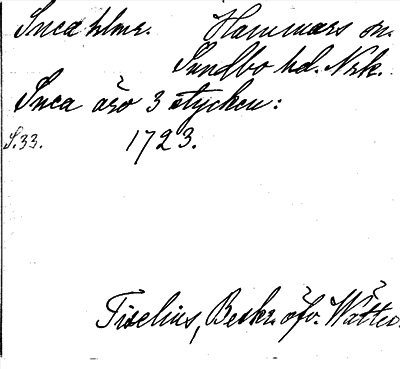 Snea hlmr. Hammars sn.
Sundbo hd. Nrk.
Snea äro 3 stycken:
S. 33. 1723.
Tiselius, Beskr. öfv. Wätter.